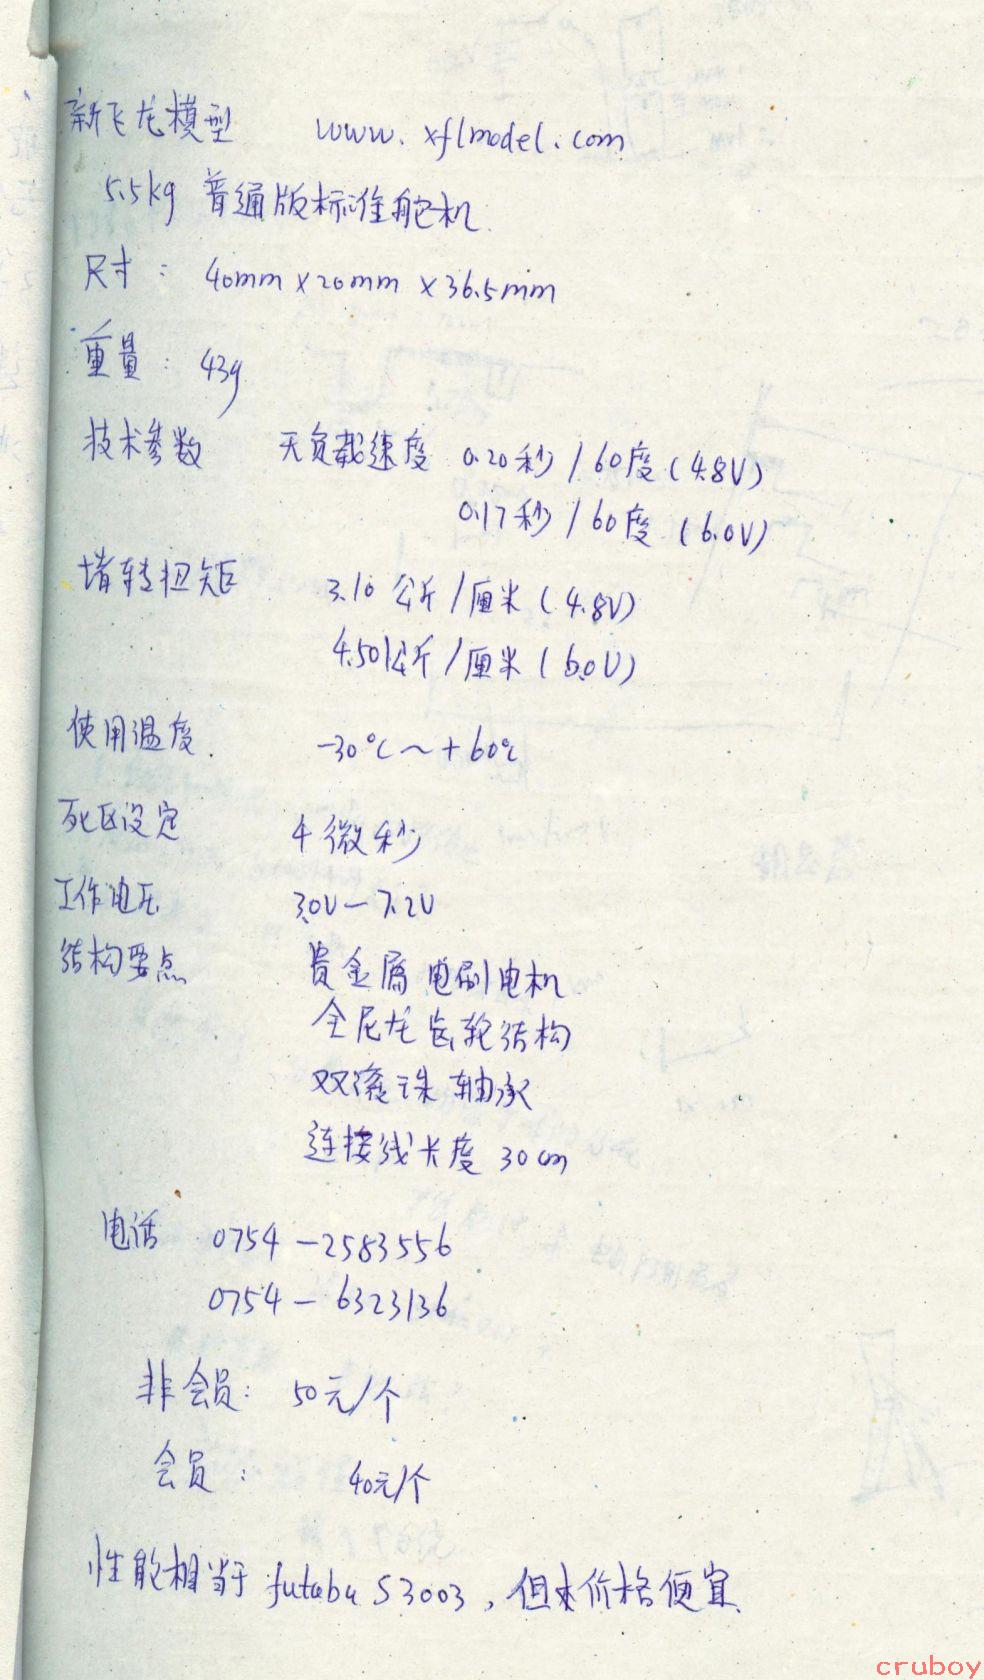 新飞龙模型 www.xflmodel.com
5.5kg 普通版标准舵机.
尺寸: 40mm x 20mm x 36.5mm
重量: 43g
技术参数 无负载速度 0.20秒/60度(4.8V)
0.17秒/60度(6.0V)
堵转扭矩 3.10公斤/厘米(4.8V)
4.50公斤/厘米(6.0V)
使用温度. -30℃~+60℃
死区设定 4微秒
工作电压 3.0V-7.2V
结构要点 贵金属电刷电机
全尼龙齿轮结构
双滚珠轴承
连接线长度 30cm
电话 0754-2583556
0754-6323136
非会员: 50元/个
会员: 40元/个
性能相当于 futaba S3003, 但价格便宜.
cruboy